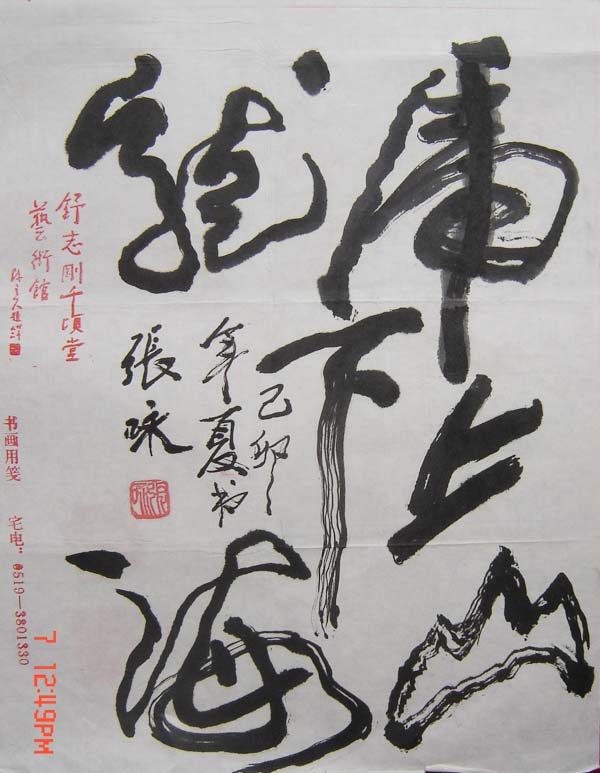 虎上山
龍下海
己卯
年夏书
張咏
舒志剛千頃堂
藝術館
书画用笺 宅电：0519—3801330
7 12:49PM